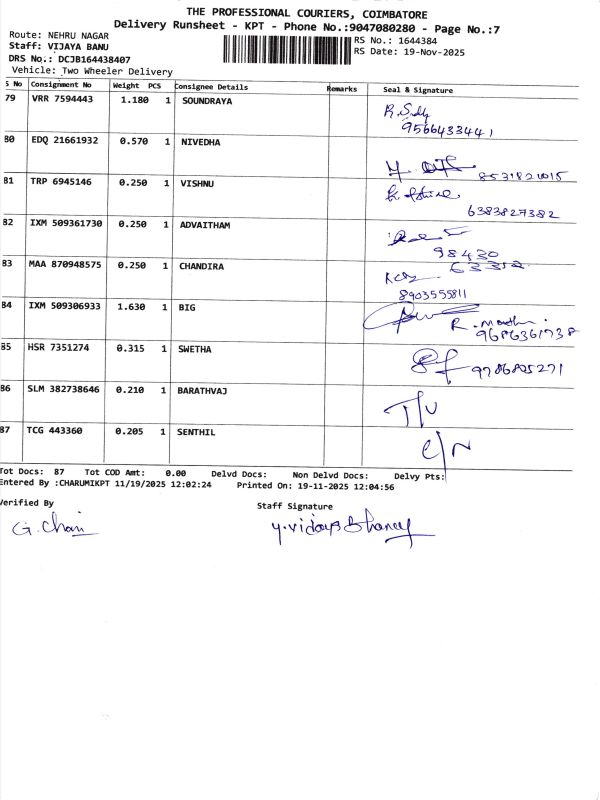 THE PROFESSIONAL COURIERS, COIMBATORE
Delivery Runsheet - KPT - Phone No.:9047080280 - Page No.:7
Route: NEHRU NAGAR
RS No.: 1644384
Staff: VIJAYA BANU
RS Date: 19-Nov-2025
DRS No.: DCJB164438407
Vehicle: Two Wheeler Delivery
S No Consignment No Weight PCS Consignee Details Remarks Seal & Signature
79 VRR 7594443 1.180 1 SOUNDRAYA
9566433441
80 EDQ 21661932 0.570 1 NIVEDHA
81 TRP 6945146 0.250 1 VISHNU
6383827382
82 IXM 509361730 0.250 1 ADVAITHAM
98430
83 MAA 870948575 0.250 1 CHANDIRA
8903555811
84 IXM 509306933 1.630 1 BIG
R.
9686361738
85 HSR 7351274 0.315 1 SWETHA
9786805271
86 SLM 382738646 0.210 1 BARATHVAJ
T/U
87 TCG 443360 0.205 1 SENTHIL
C/N
Tot Docs: 87 Tot COD Amt: 0.00 Delvd Docs: Non Delvd Docs: Delvy Pts:
Entered By :CHARUMIKPT 11/19/2025 12:02:24 Printed On: 19-11-2025 12:04:56
Verified By
Staff Signature
G. Chari